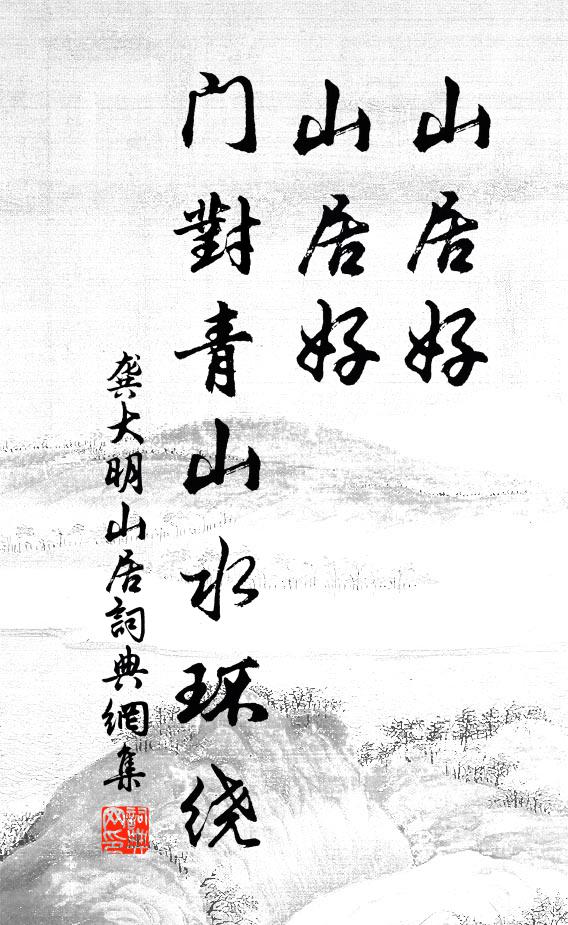 山居好
山居好
门對青山水环绕
龚大明山居詞典網集